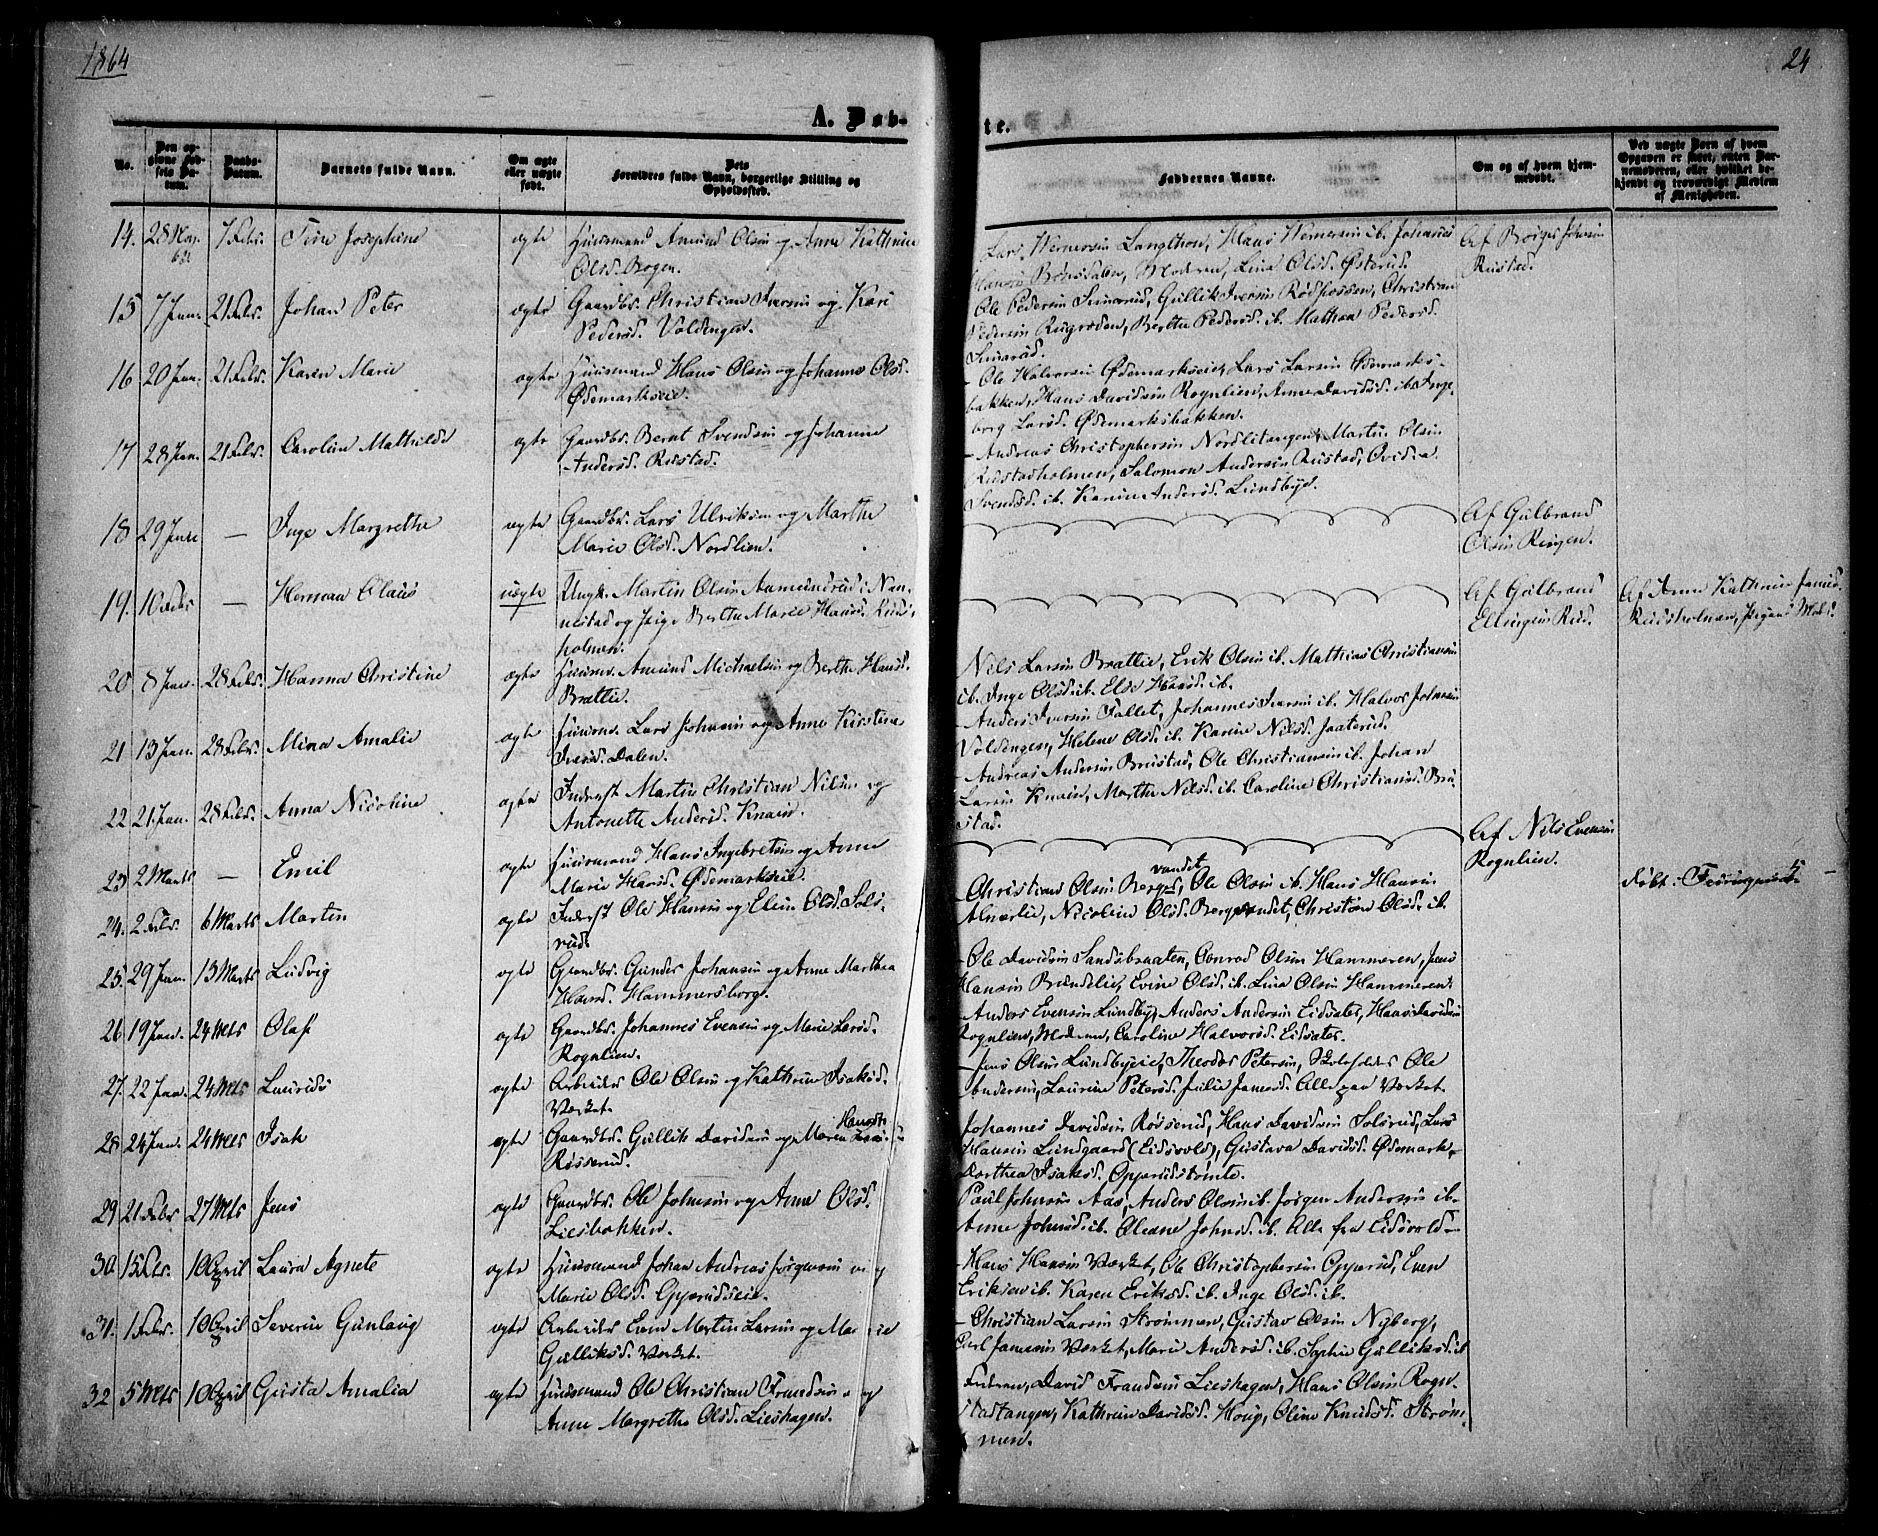 1864
24
A. Døb-
te.
No.
Den op-
givne Fød-
sels Da-
tum.
Daabs-
Datum.
Barnets fulde Navn.
Om ægte
eller uægte
født.
Dets
Forældres fulde Navn, borgerlige Stilling og
Opholdssted.
Faddernes Navne.
Om og af hvem hjem-
medøbt.
Ved uægte Børn af hvem
Opgaven er skeet, enten Bar-
nemoderen, eller hvilket be-
kjendt og troværdigt Medlem
af Menigheden.
14. 28 Nov. 7 Febr. Tine Josephine ægte Huusmand Amund Olsen og Anne Kathrine
Olsd. Bogen.
Lars Wernersen Langthon, Hans Wernersen ib. Johannes
Hansen Bønsdalen, Moderen, Lina Olsd. Østerud.
Af Borger Johnsen
Rustad.
15 7 Jan. 21 Febr. Johan Peter ægte Gaardbr. Christian Iversen og Kari
Pedersd. Voldengen.
Ole Pedersen Sinnerud, Gullik Iversen Rødfossen, Christian
Pedersen Rugraden, Berthe Pedersd. ib. Mathea Pedersd.
Sinnerud.
16 20 Jan. 21 Febr. Karen Marie ægte Huusmand Hans Olsen og Johanne Olsd.
Ødemarkseie.
- Ole Halvorsen Ødemarkseie, Lars Larsen Ødemarks-
bakken, Hans Davidsen Rognlien, Anne Davidsd. ib. Inge-
borg Larsd. Ødemarksbakken.
17 28 Jan. 21 Febr. Caroline Mathilde ægte Gaardbr. Bernt Svendsen og Johanne
Andersd. Rustad.
- Andreas Christophersen Nordlitangen, Martin Olsen
Rustadholmen, Salomon Andersen Rustad,
Svendsd. ib. Karine Andersd. Lundbye.
18 29 Jan — Inge Margrethe ægte Gaardbr. Lars Ulriksen og Marthe
Marie Olsd. Nordlien.
Af Gulbrand
Olsen Ringen.
19. 10 Febr — Herman Olaus uægte Ungk. Martin Olsen Aamundrud i Nan-
nestad og Pige Berthe Marie Hansd. Ruds-
holmen.
Af Gulbrand
Ellingsen Rud.
Af Anne Kathrine
Rudsholmen, Pigens Mod.
20 8 Jan. 28 Febr. Hanna Christine ægte Huusm. Amund Michaelsen og Berthe Hansd.
Brattlie.
Nils Larsen Brattlie, Erik Olsen ib. Mathias Christiansen
ib. Inge Olsd. ib. Else Hansd. ib.
21 13 Jan. 28 Febr. Mina Amalie ægte Huusm. Lars Johnsen og Anne Kirstine
Iversd. Dalen.
Anders Iversen Fallet, Johannes Iversen ib. Halvor Johnsen
Voldengen, Helene Olsd. ib. Karine Nilsd. Jaaterud.
22 21 Jan. 28 Febr. Anna Nicoline ægte Inderst Martin Christian Nilsen og
Antonette Andersd. Knain.
- Andreas Andersen Brustad, Ole Christiansen ib. Johan
Larsen Knain, Marthe Nilsd. ib. Caroline Christiansd. Bru-
stad.
23 2 Marts — Emil ægte Huusmand Hans Ingebretsen og Anne
Marie Hansd. Ødemarkseie.
Af Nils Evensen
Rognlien.
24. 2 Febr. 6 Marts Martin ægte Inderst Ole Hansen og Eline Olsd. Sols-
rud.
- Christian Olsen Bergsvandet, Ole Olsen ib. Hans Hansen
Almerlie, Nicoline Olsd. Bergsvandet, Christian Olsd. ib.
25. 29 Jan. 13 Marts Ludvig ægte Gaardbr. Gunder Johansen og Anne Marthea
Hansd. Hammersborg.
- Ole Davidsen Sandsbraaten, Conrad Olsen Hammeren, Jens
Hansen Bundelie, Evine Olsd. ib. Lina Olsen Hammeren.
26 19 Jan. 24 Mts Olaf ægte Gaardbr. Johannes Evensen og Marie Larsd.
Rognlien.
Anders Evensen Lundbye, Anders Andersen Eidsæter, Hans Davidsen
Rognlien, Moderen, Caroline Halvorsd. Eidsæter.
27. 22 Jan. 24 Mts Laurids ægte Arbeider Ole Olsen og Kathrine Isaksd.
Værket.
- Jens Olsen Lundbyeie, Theodor Petersen, Skoleholder Ole
Andersen, Laurine Petersd. Julie Jansd. Alle paa Værket.
28 24 Jan. 24 Mts Isak ægte Gaardbr. Gullik Davidsen og Maren Hansdtr
Røsserud.
Johannes Davidsen Røsserud, Hans Davidsen Solsrud, Lars
Hansen Lundgaard (Eidsvold), Gustava Davidsd. Ødemark,
Dorthea Isaksd. Opperudstomte.
29 21 Febr 27 Mts Jens ægte Gaardbr. Ole Johnsen og Anne Olsd.
Liesbakken.
Paul Johnsen Aas, Anders Olsen ib. Jørgen Andersen ib.
Anne Johnsd. ib. Oleane Johnsd. ib. Alle fra Eidsvold
30 15 Febr. 10 April Laura Agnete ægte Huusmand Johan Andreas Jørgensen og
Marie Olsd. Opperudseie.
- Hans Hansen Værket, Ole Christophersen Opperud, Even
Eriksen ib. Karen Eriksd. ib. Inge Olsd. ib.
31. 1 Febr. 10 April Severin Gunlaug ægte Arbeider Even Martin Larsen og Marie
Gulliksd. Værket.
- Christian Larsen Strømmen, Gustav Olsen Nyberg,
Carl Jansen Værket, Marie Andersd. ib. Sophie Gulliksd. ib
32 5 Mts 10 April Gusta Amalia ægte Huusmand Ole Christian Frandsen og
Anne Margrethe Olsd. Lieshagen.
Faderen, David Frandsen Lieshagen, Hans Olsen Rogn-
stadtangen, Kathrine Davidsd. Houg, Oline Knudsd. Strøm-
men.